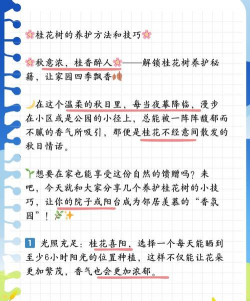 🌸桂花树的养护方法和技巧🌸
🌸秋意浓，桂香醉人🌸——解锁桂花树养护秘
籍，让家园四季飘香🍂
🌙在这个温柔的秋日里，每当夜幕降临，漫步
在小区或是公园的小径上，总能被一阵阵馥郁而
不腻的香气所吸引，那便是桂花不经意间散发的
秋日情话。
🌱想要在家也能享受这份自然的馈赠吗？来
吧，今天就和大家分享几个养护桂花树的小技
巧，让你的院子或阳台成为邻居羡慕的“香氛
园”！🌿✨
1️⃣ 光照充足：桂花喜阳，选择一个每天能晒到
至少6小时阳光的位置种植，这样不仅能让花朵
更加繁茂，香气也会更加浓郁。